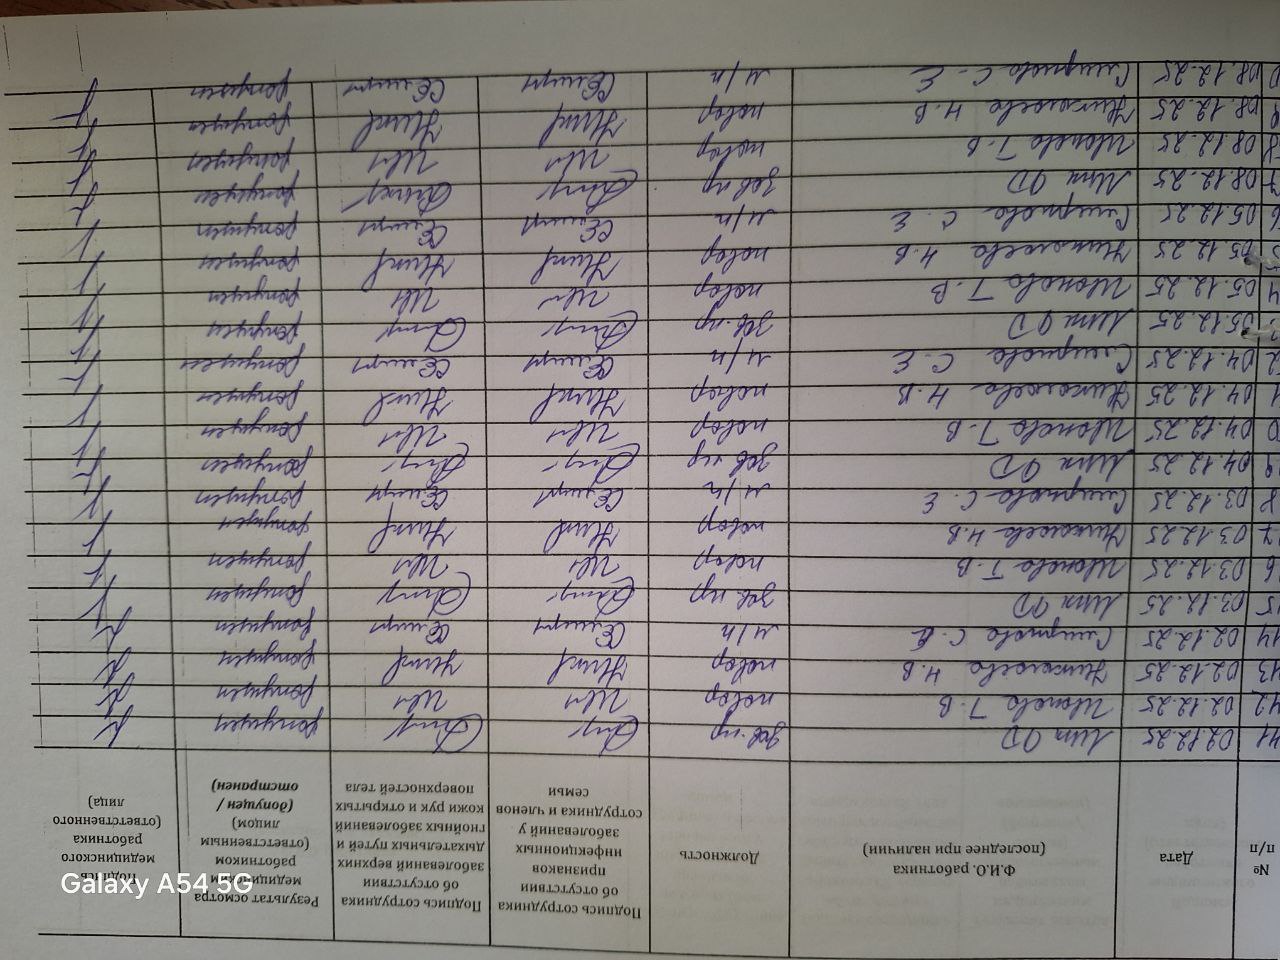 № п/п
Дата
Ф.И.О. работника (последнее при наличии)
Должность
Подпись сотрудника об отсутствии признаков инфекционных заболеваний у сотрудника и членов семьи
Подпись сотрудника об отсутствии заболеваний верхних дыхательных путей и гнойных заболеваний кожи рук и открытых поверхностей тела
Результат осмотра медицинским работником (ответственным лицом) (допущен / отстранен)
Подпись медицинского работника (ответственного лица)
02.12.25 зав. пр допущен
02.12.25 Иванова Т.В повар Ив Ив допущен
02.12.25 Николаева Н.В повар допущен
02.12.25 Смирнова С.Е м/п допущен
03.12.25 зав. пр допущен
03.12.25 Иванова Т.В повар Ив Ив допущен
03.12.25 Николаева Н.В повар допущен
03.12.25 Смирнова С.Е м/п допущен
04.12.25 зав. пр допущен
04.12.25 Иванова Т.В повар Ив Ив допущен
04.12.25 Николаева Н.В повар допущен
04.12.25 Смирнова С.Е м/п допущен
05.12.25 зав. пр допущен
05.12.25 Иванова Т.В повар Ив Ив допущен
05.12.25 Николаева Н.В повар допущен
05.12.25 Смирнова С.Е м/п допущен
08.12.25 зав. пр допущен
08.12.25 Иванова Т.В повар Ив Ив допущен
08.12.25 Николаева Н.В повар допущен
08.12.25 Смирнова С.Е м/п допущен
Galaxy A54 5G